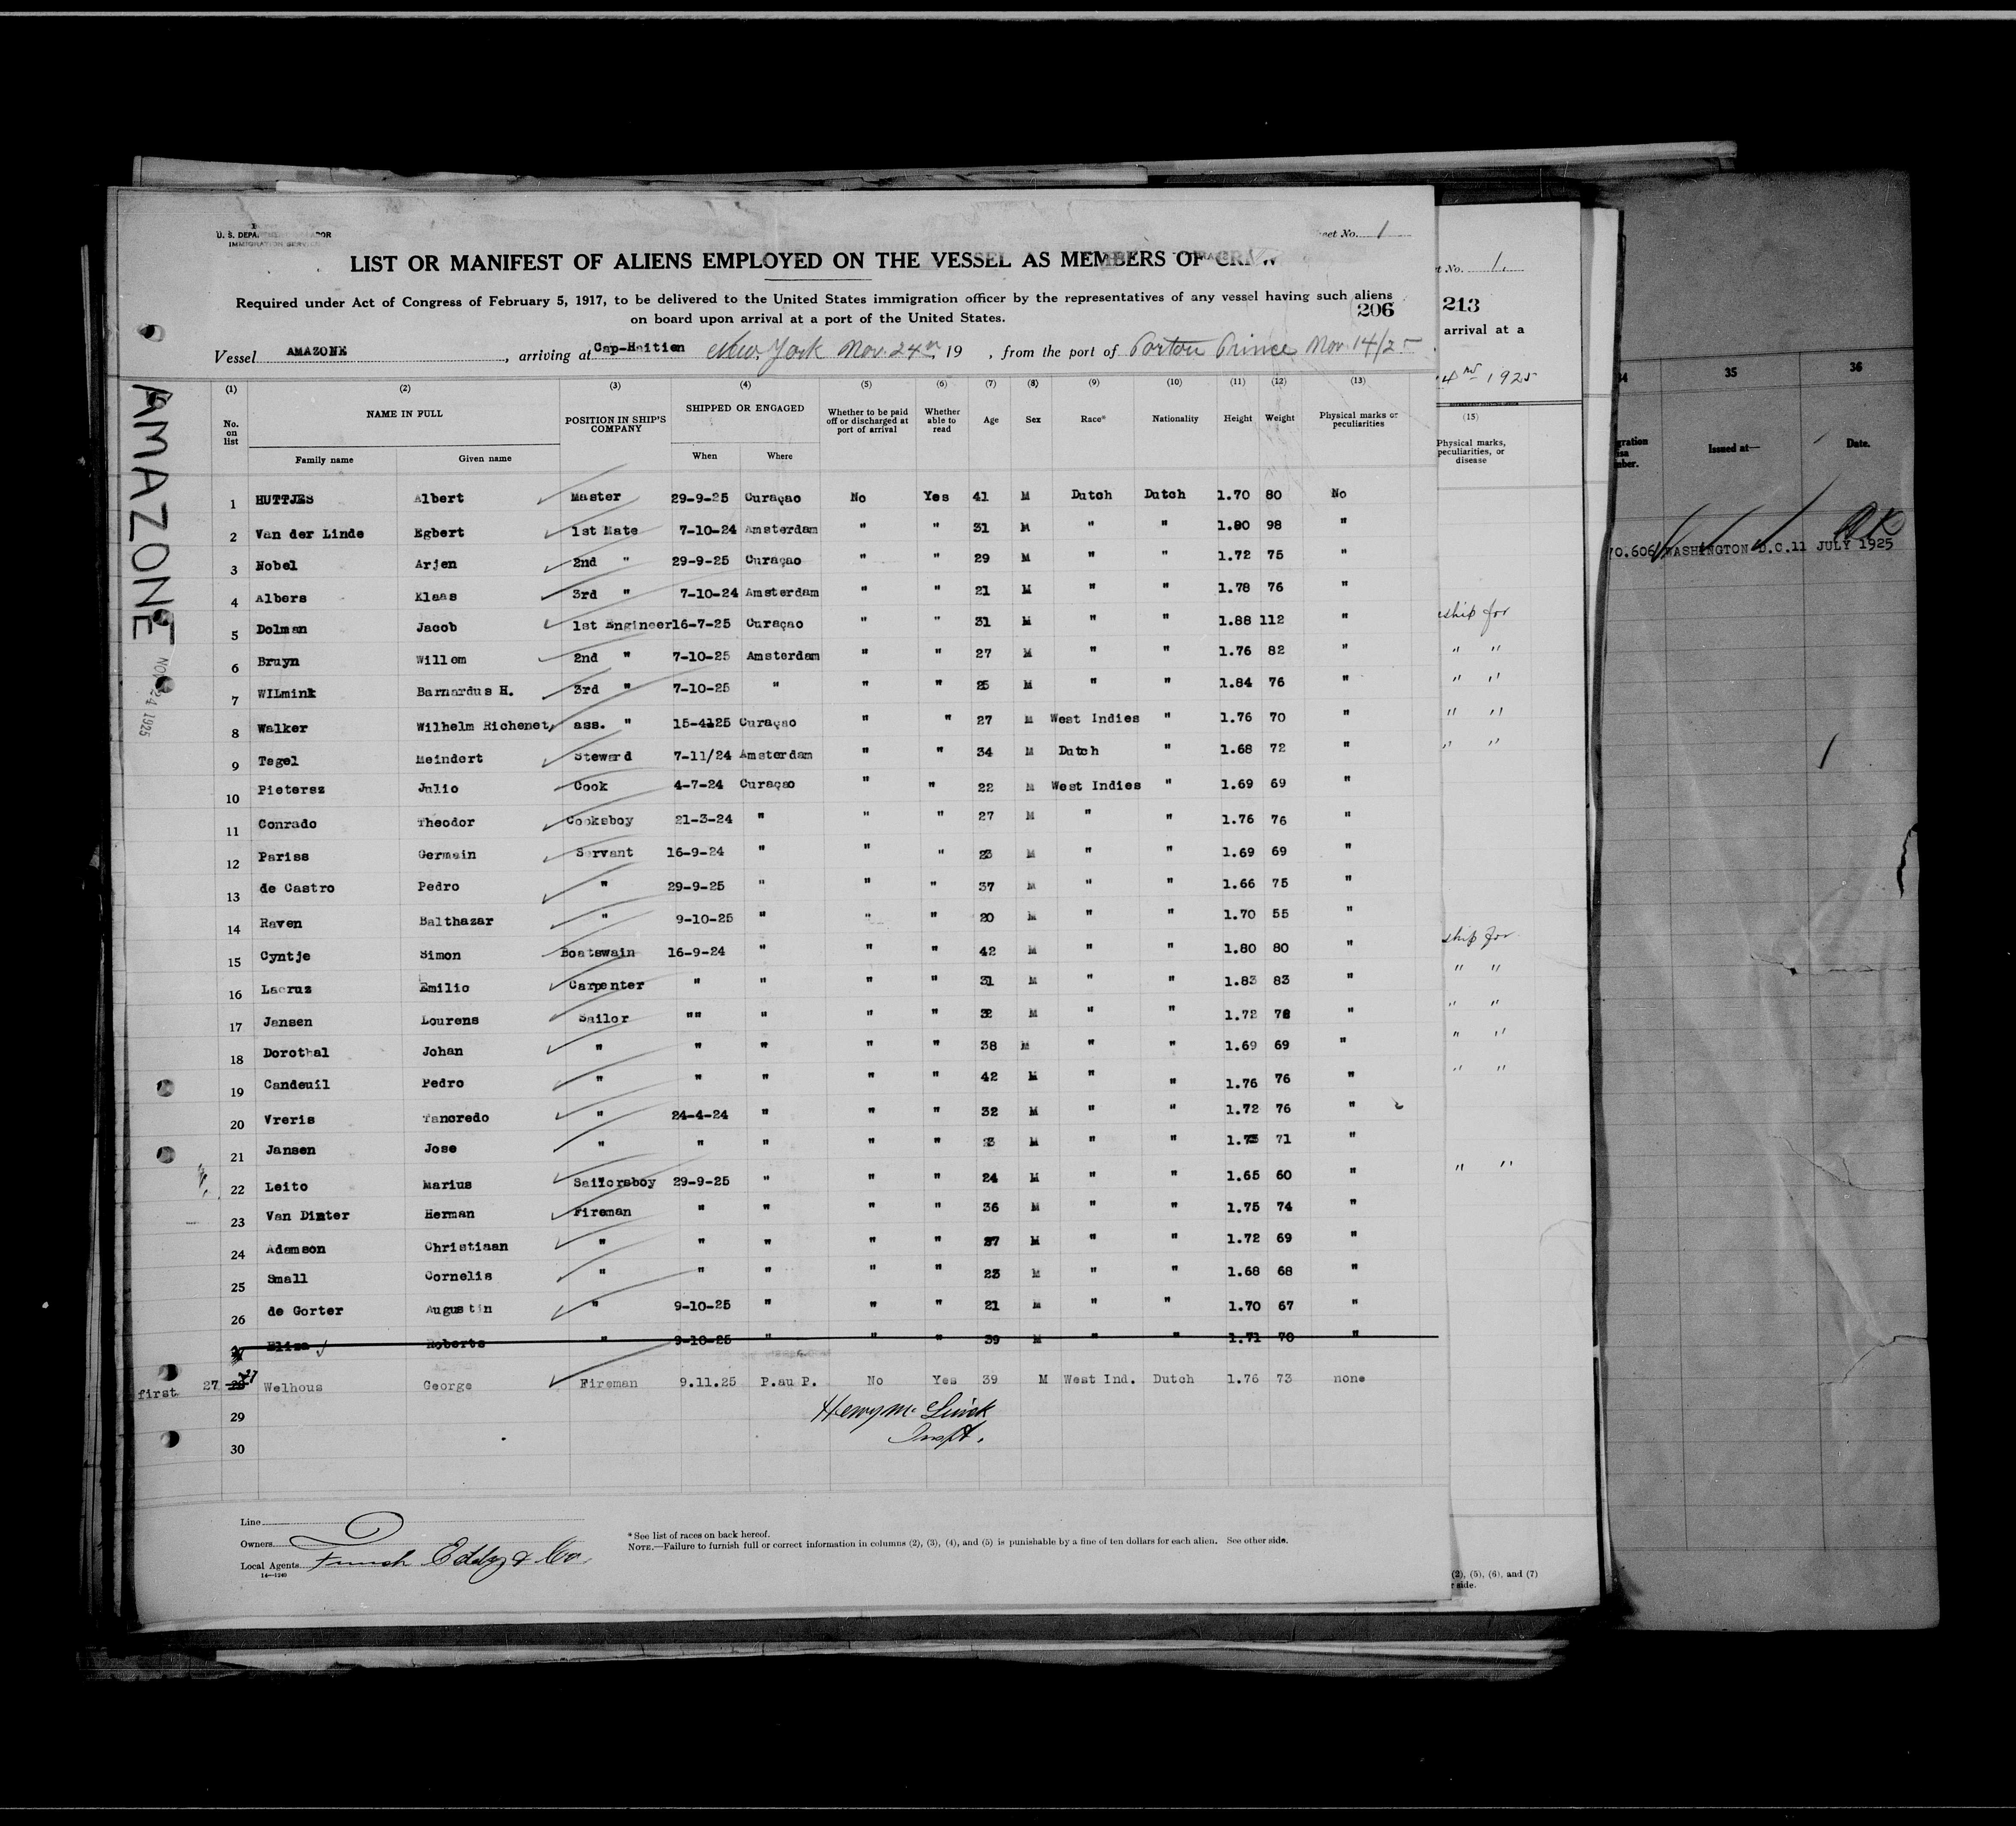 U. S. DEPA
IMMIGRATION SERVICE
Sheet No. 1
LIST OR MANIFEST OF ALIENS EMPLOYED ON THE VESSEL AS MEMBERS OF CREW
Required under Act of Congress of February 5, 1917, to be delivered to the United States immigration officer by the representatives of any vessel having such aliens
on board upon arrival at a port of the United States.
206
Vessel AMAZONE, arriving at Cap-Haitien New York Nov. 24th, 19 , from the port of Portou Prince Nov 14/25
(1) (2) (3) (4) (5) (6) (7) (8) (9) (10) (11) (12) (13)
No. on list NAME IN FULL Family name Given name POSITION IN SHIP'S COMPANY SHIPPED OR ENGAGED When Where Whether to be paid off or discharged at port of arrival Whether able to read Age Sex Race* Nationality Height Weight Physical marks or peculiarities
1 HUTTJES Albert Master 29-9-25 Curaçao No Yes 41 M Dutch Dutch 1.70 80 No
2 Van der Linde Egbert 1st Mate 7-10-24 Amsterdam " " 31 M " " 1.80 98 "
3 Nobel Arjen 2nd " 29-9-25 Curaçao " " 29 M " " 1.72 75 "
4 Albers Klaas 3rd " 7-10-24 Amsterdam " " 21 M " " 1.78 76 "
5 Dolman Jacob 1st Engineer 16-7-25 Curaçao " " 31 M " " 1.88 112 "
6 Bruyn Willem 2nd " 7-10-25 Amsterdam " " 27 M " " 1.76 82 "
7 WILmink Barnardus H. 3rd " 7-10-25 " " " 25 M " " 1.84 76 "
8 Walker Wilhelm Richenet ass. " 15-4125 Curaçao " " 27 M West Indies " 1.76 70 "
9 Tagel Meindert Steward 7-11/24 Amsterdam " " 34 M Dutch " 1.68 72 "
10 Pietersz Julio Cook 4-7-24 Curaçao " " 22 M West Indies " 1.69 69 "
11 Conrado Theodor Cooksboy 21-3-24 " " " 27 M " " 1.76 76 "
12 Pariss Germain Servant 16-9-24 " " " 23 M " " 1.69 69 "
13 de Castro Pedro " 29-9-25 " " " 37 M " " 1.66 75 "
14 Raven Balthazar " 9-10-25 " " " 20 M " " 1.70 55 "
15 Cyntje Simon Boatswain 16-9-24 " " " 42 M " " 1.80 80 "
16 Lacruz Emilio Carpenter " " " " 31 M " " 1.83 83 "
17 Jansen Lourens Sailor "" " " " 32 M " " 1.72 78 "
18 Dorothal Johan " " " " " 38 M " " 1.69 69 "
19 Candeuil Pedro " " " " " 42 M " " 1.76 76 "
20 Vreris Tancredo " 24-4-24 " " " 32 M " " 1.72 76 "
21 Jansen Jose " " " " " M " " 1.73 71 "
22 Leito Marius Sailorsboy 29-9-25 " " " 24 M " " 1.65 60 "
23 Van Dinter Herman Fireman " " " " 36 M " " 1.75 74 "
24 Adamson Christiaan " " " " " 27 M " " 1.72 69 "
25 Small Cornelis " " " " " 23 M " " 1.68 68 "
26 de Gorter Augustin " 9-10-25 " " " 21 M " " 1.70 67 "
Eliza Roberts " 9-10-25 " " " 39 M " " 1.71 70 "
first 27 28 27 Welhous George Fireman 9.11.25 P.au P. No Yes 39 M West Ind. Dutch 1.76 73 none
29 Henry M.
30 Inspt.
Line
Owners
Local Agents Funch Eddy & Co.
14—1240
*See list of races on back hereof.
NOTE.—Failure to furnish full or correct information in columns (2), (3), (4), and (5) is punishable by a fine of ten dollars for each alien. See other side.
AMAZONE
NOV 24 1925
t No. 1.
213
arrival at a
1925
(15)
Physical marks, peculiarities, or disease
ship for
" "
" "
" "
" "
ship for
" "
" "
" "
" "
" "
(2), (5), (6), and (7)
r side.
34 35 36
Issued at— Date.
70.606 WASHINGTON D.C. 11 JULY 1925